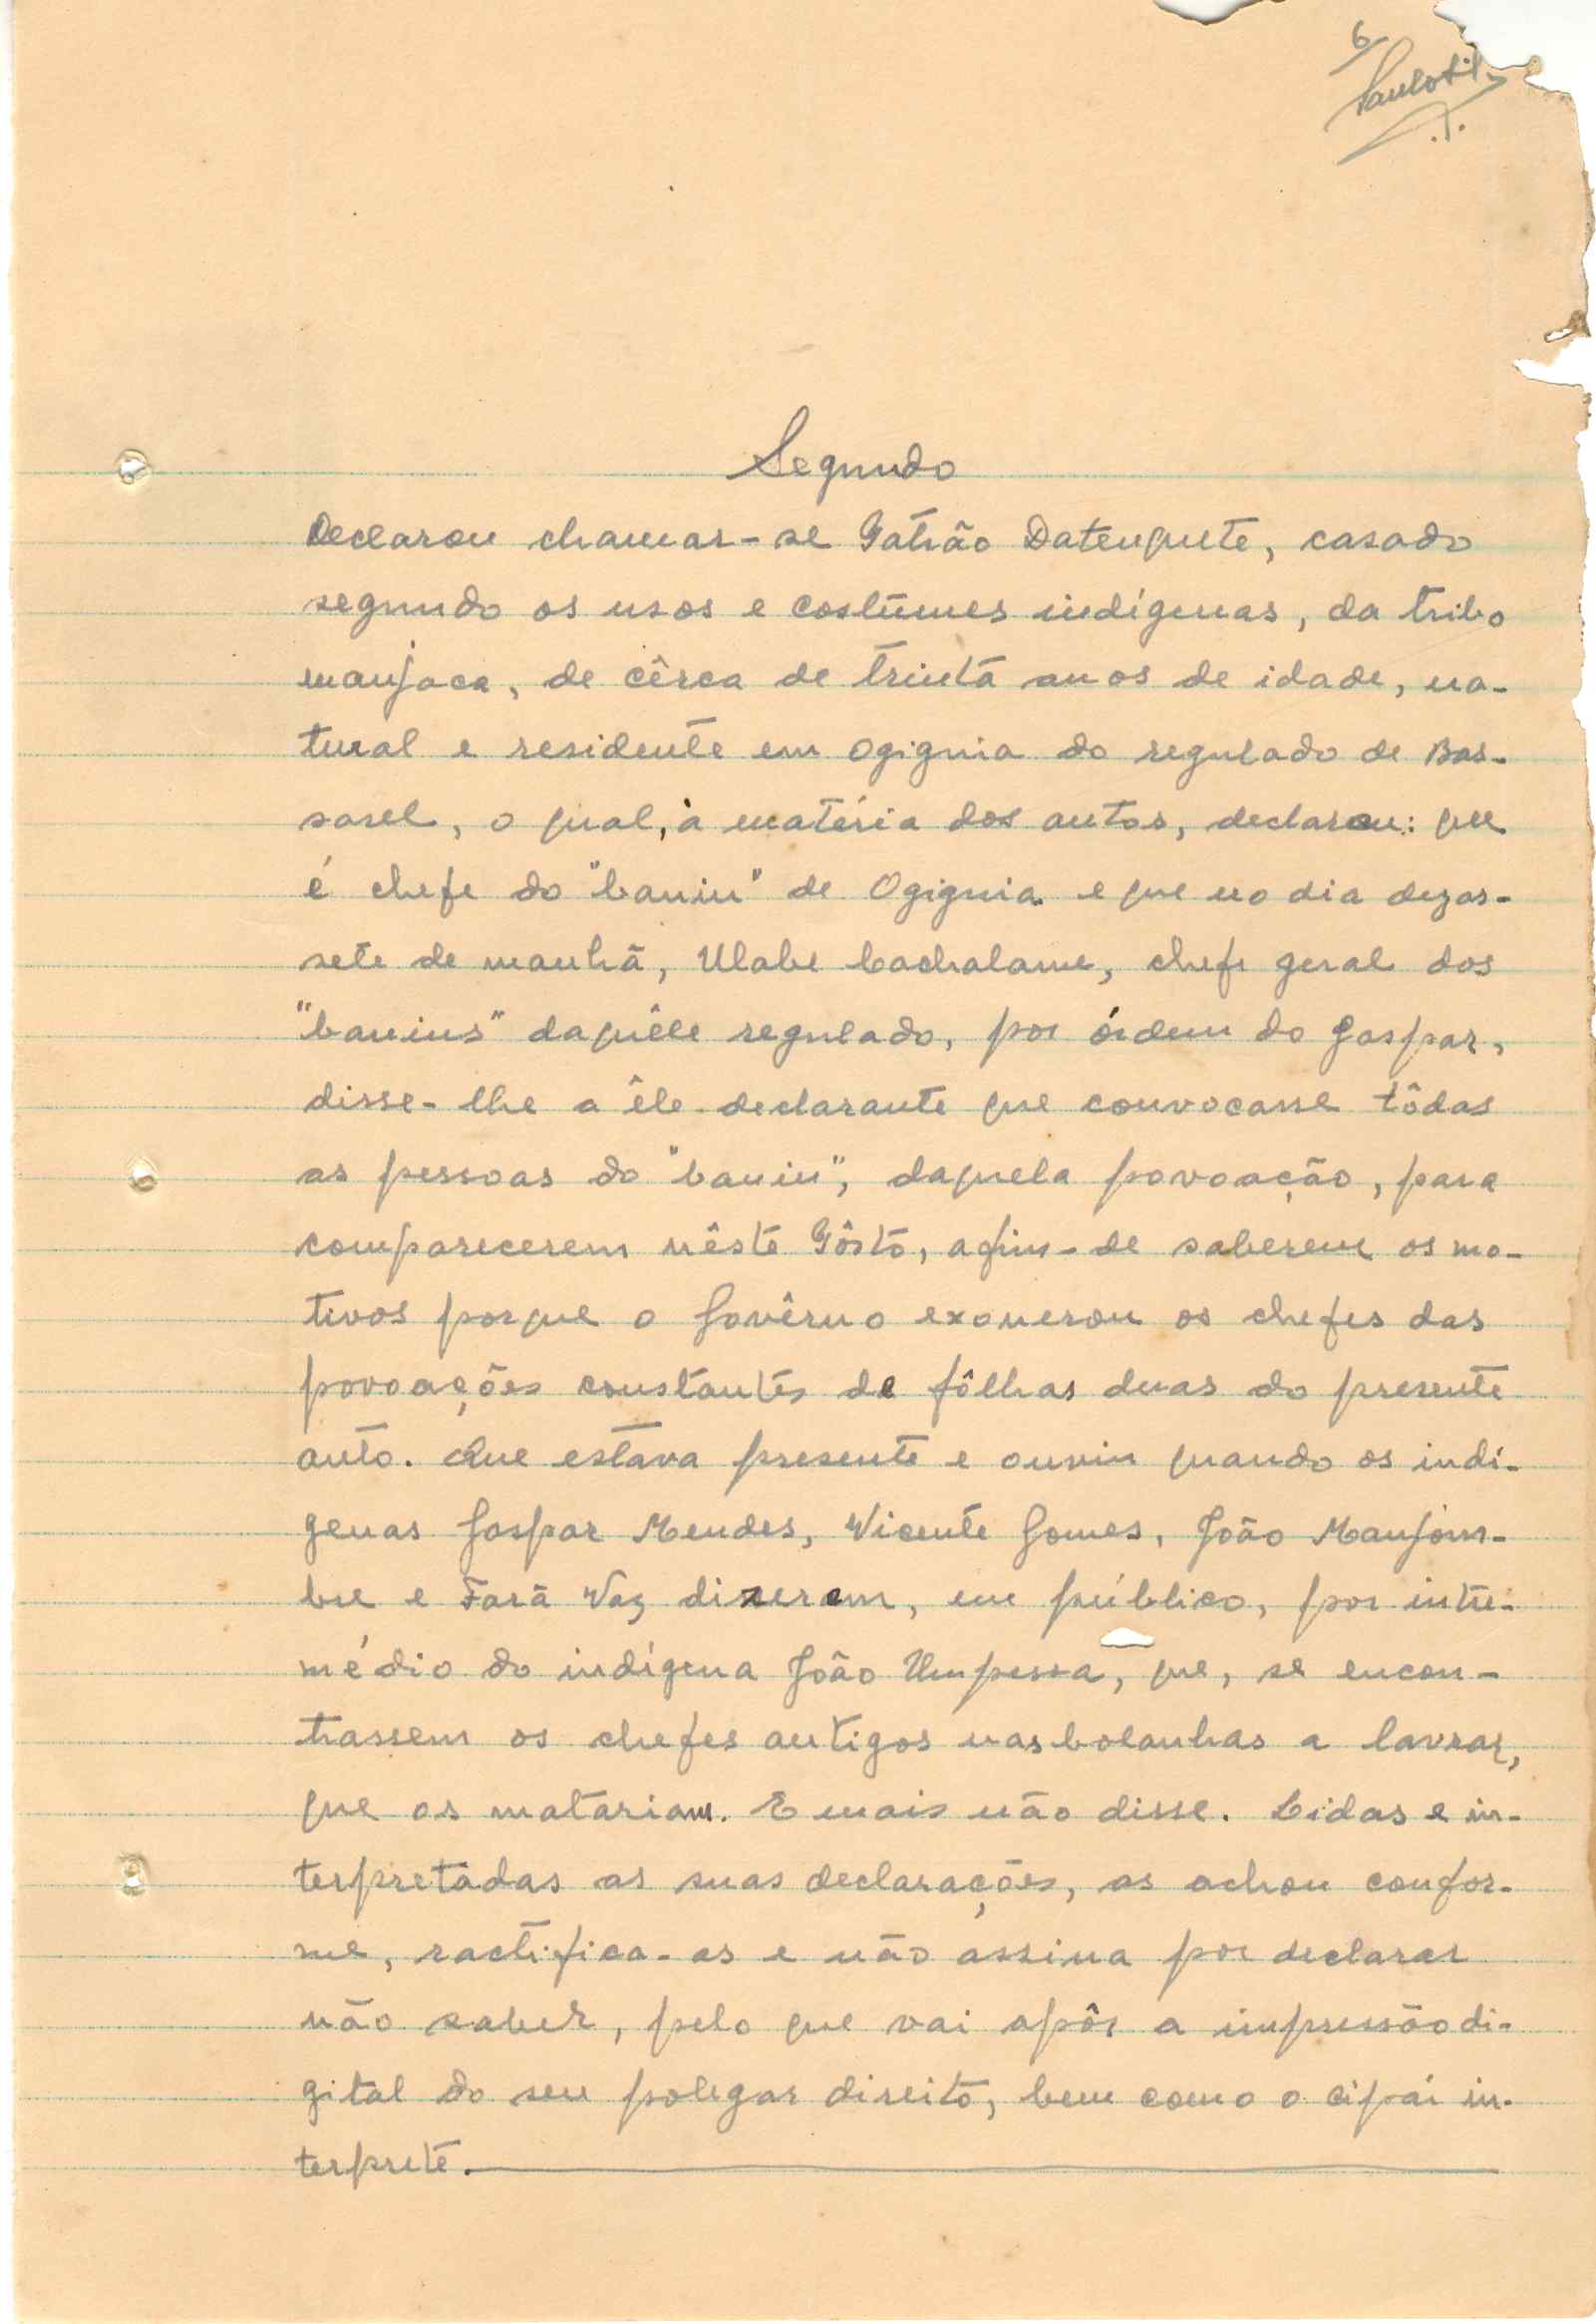 6
Segundo
Declarou chamar-se Gatrão Datenquete, casado
segundo os usos e costûmes indígenas, da tribo
manjaca, de cêrca de trinta anos de idade, na-
tural e residente em Ogignia do regulado de Bas-
sarel, o qual, à matéria dos autos, declarou: que
é chefe do "baniu" de Ogignia e que no dia dezas-
sete de manhã, Ulabe Cachalame, chefe geral dos
"banius" daquêle regulado, por órdem do Gaspar,
disse-lhe a êle declarante que convocasse tôdas
as pessoas do "baniu", daquela povoação, para
comparecerem nêste Pôsto, afim-de saberem os mo-
tivos porque o Govêrno exonerou os chefes das
povoações constantes de fôlhas duas do presente
auto. Que estava presente e ouviu quando os indí-
genas Gaspar Mendes, Vicente Gomes, João Manjom-
bre e Fará Vaz dizerem, em público, por inter-
médio do indígena João Umpessa, que, se encon-
trassem os chefes antigos nas bolanhas a lavrar,
que os matariam. E mais não disse. Lidas e in-
terpretadas as suas declarações, as achou confor-
me, ractifica-as e não assina por declarar
não saber, pelo que vai apôr a impressão di-
gital do seu polegar direito, bem como o cipai in-
terprete.